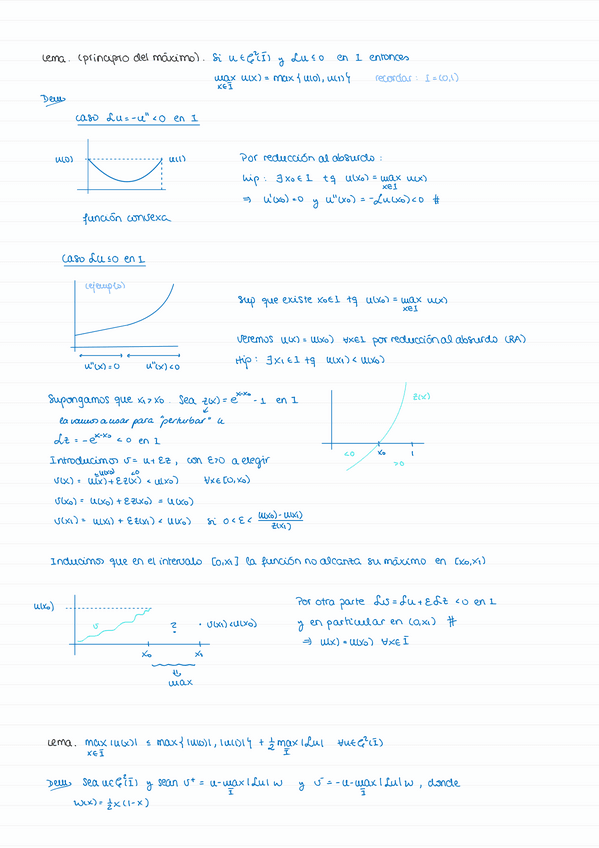 Lema. (principio del máximo). Si u ∈ C²(Ī) y Lu ≤ 0 en I entonces
max u(x) = max{u(0), u(1)} recordar: I=(0,1)
x∈Ī
Dem
caso Lu = -u'' < 0 en I
u(0) u(1)
función convexa
Por reducción al absurdo:
hip: ∃x₀ ∈ I tq u(x₀) = max u(x)
x∈I
⇒ u'(x₀) = 0 y u''(x₀) = -Lu(x₀) < 0 #
caso Lu ≤ 0 en I
(ejemplo)
u''(x) = 0 u''(x) < 0
Sup que existe x₀ ∈ I tq u(x₀) = max u(x)
x∈I
veremos u(x) = u(x₀) ∀x∈I por reducción al absurdo (RA)
Hip: ∃x₁ ∈ I tq u(x₁) < u(x₀)
Supongamos que x₁ > x₀. Sea z(x) = e^(x-x₀) - 1 en I
la vamos a usar para "perturbar" u
Lz = -e^(x-x₀) < 0 en I
z(x)
<0 x₀ 1
>0
Introducimos v = u + εz, con ε>0 a elegir
≤u(x₀) <0
v(x) = u(x) + εz(x) < u(x₀) ∀x∈[0,x₀)
v(x₀) = u(x₀) + εz(x₀) = u(x₀)
v(x₁) = u(x₁) + εz(x₁) < u(x₀) si 0 < ε < (u(x₀) - u(x₁))/z(x₁)
Inducimos que en el intervalo [0,x₁] la función no alcanza su máximo en [x₀,x₁)
u(x₀)
v ? · v(x₁) < u(x₀)
x₀ x₁
max
Por otra parte Lv = Lu + εLz < 0 en I
y en particular en (0,x₁) #
⇒ u(x) = u(x₀) ∀x∈Ī
Lema. max |u(x)| ≤ max{|u(0)|, |u(1)|} + ½ max |Lu| ∀u∈C²(Ī)
x∈Ī Ī
Dem Sea u∈C²(Ī) y sean v⁺ = u - max |Lu| w y v⁻ = -u - max |Lu| w, donde
Ī Ī
w(x) = ½x(1-x)